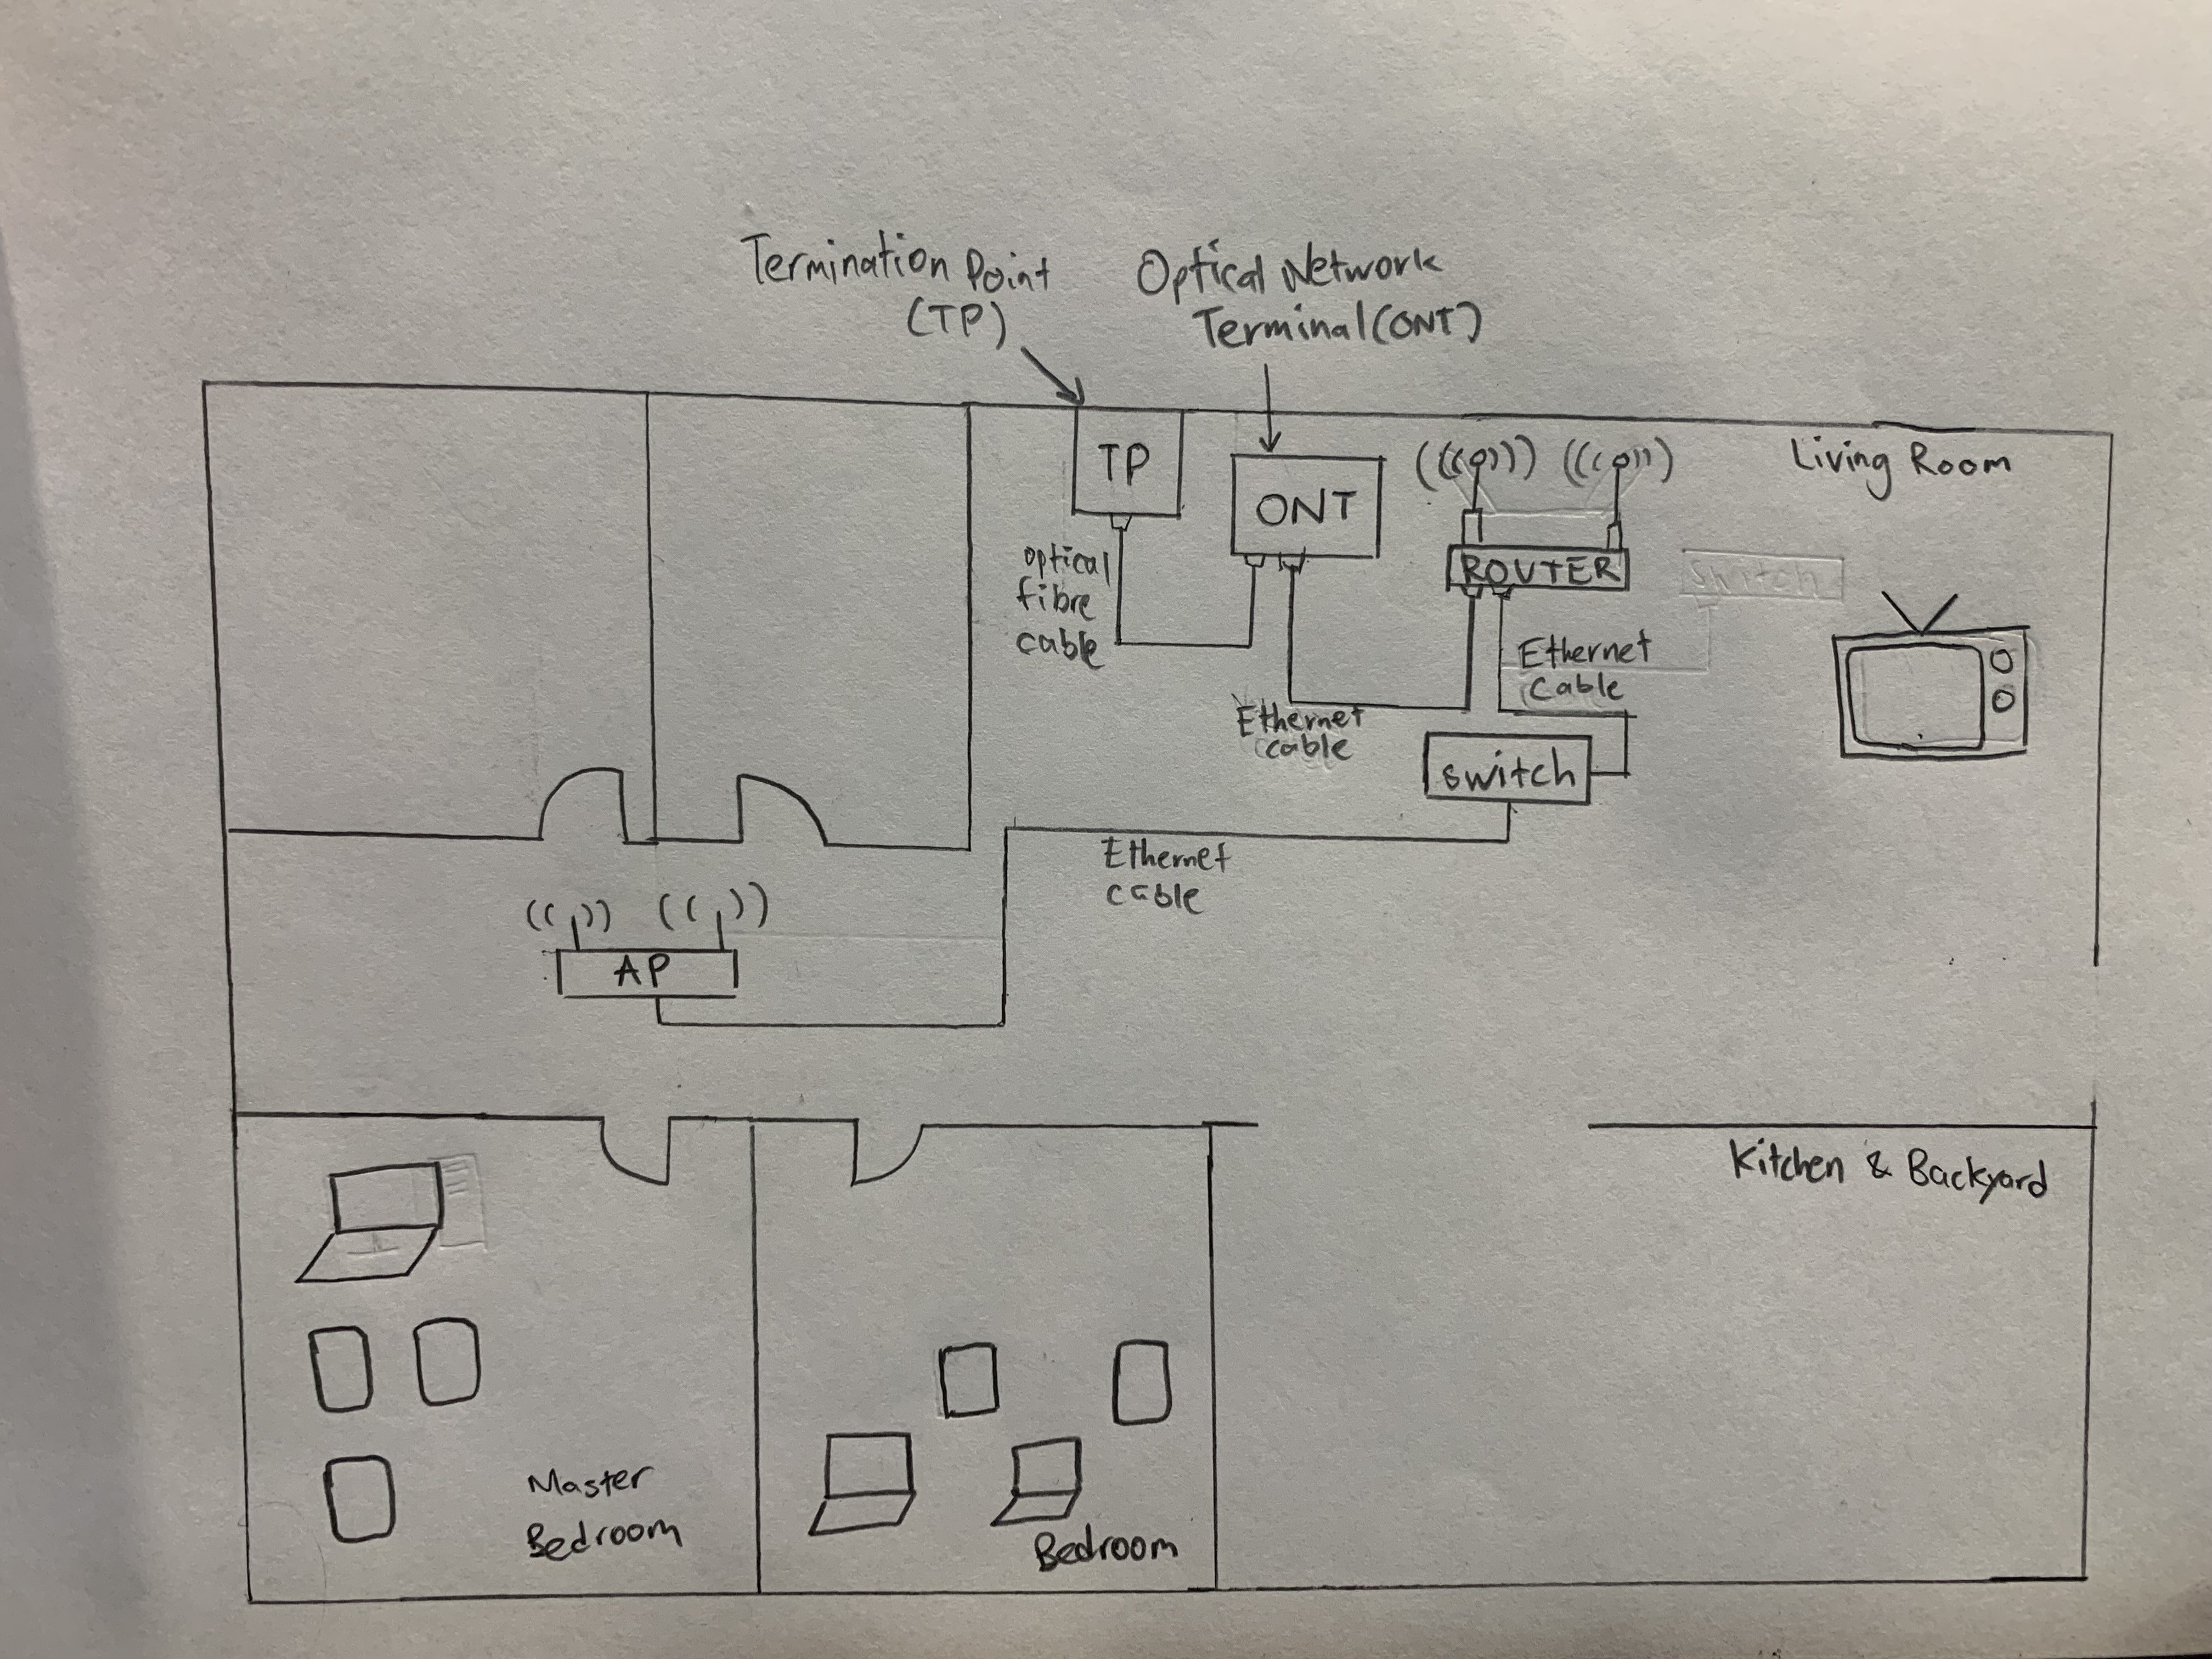 Termination Point
(TP)
Optical Network
Terminal (ONT)
TP
ONT
Living Room
ROUTER
switch
optical
fibre
cable
Ethernet
Cable
Ethernet
cable
switch
Ethernet
cable
AP
Kitchen & Backyard
Master
Bedroom
Bedroom